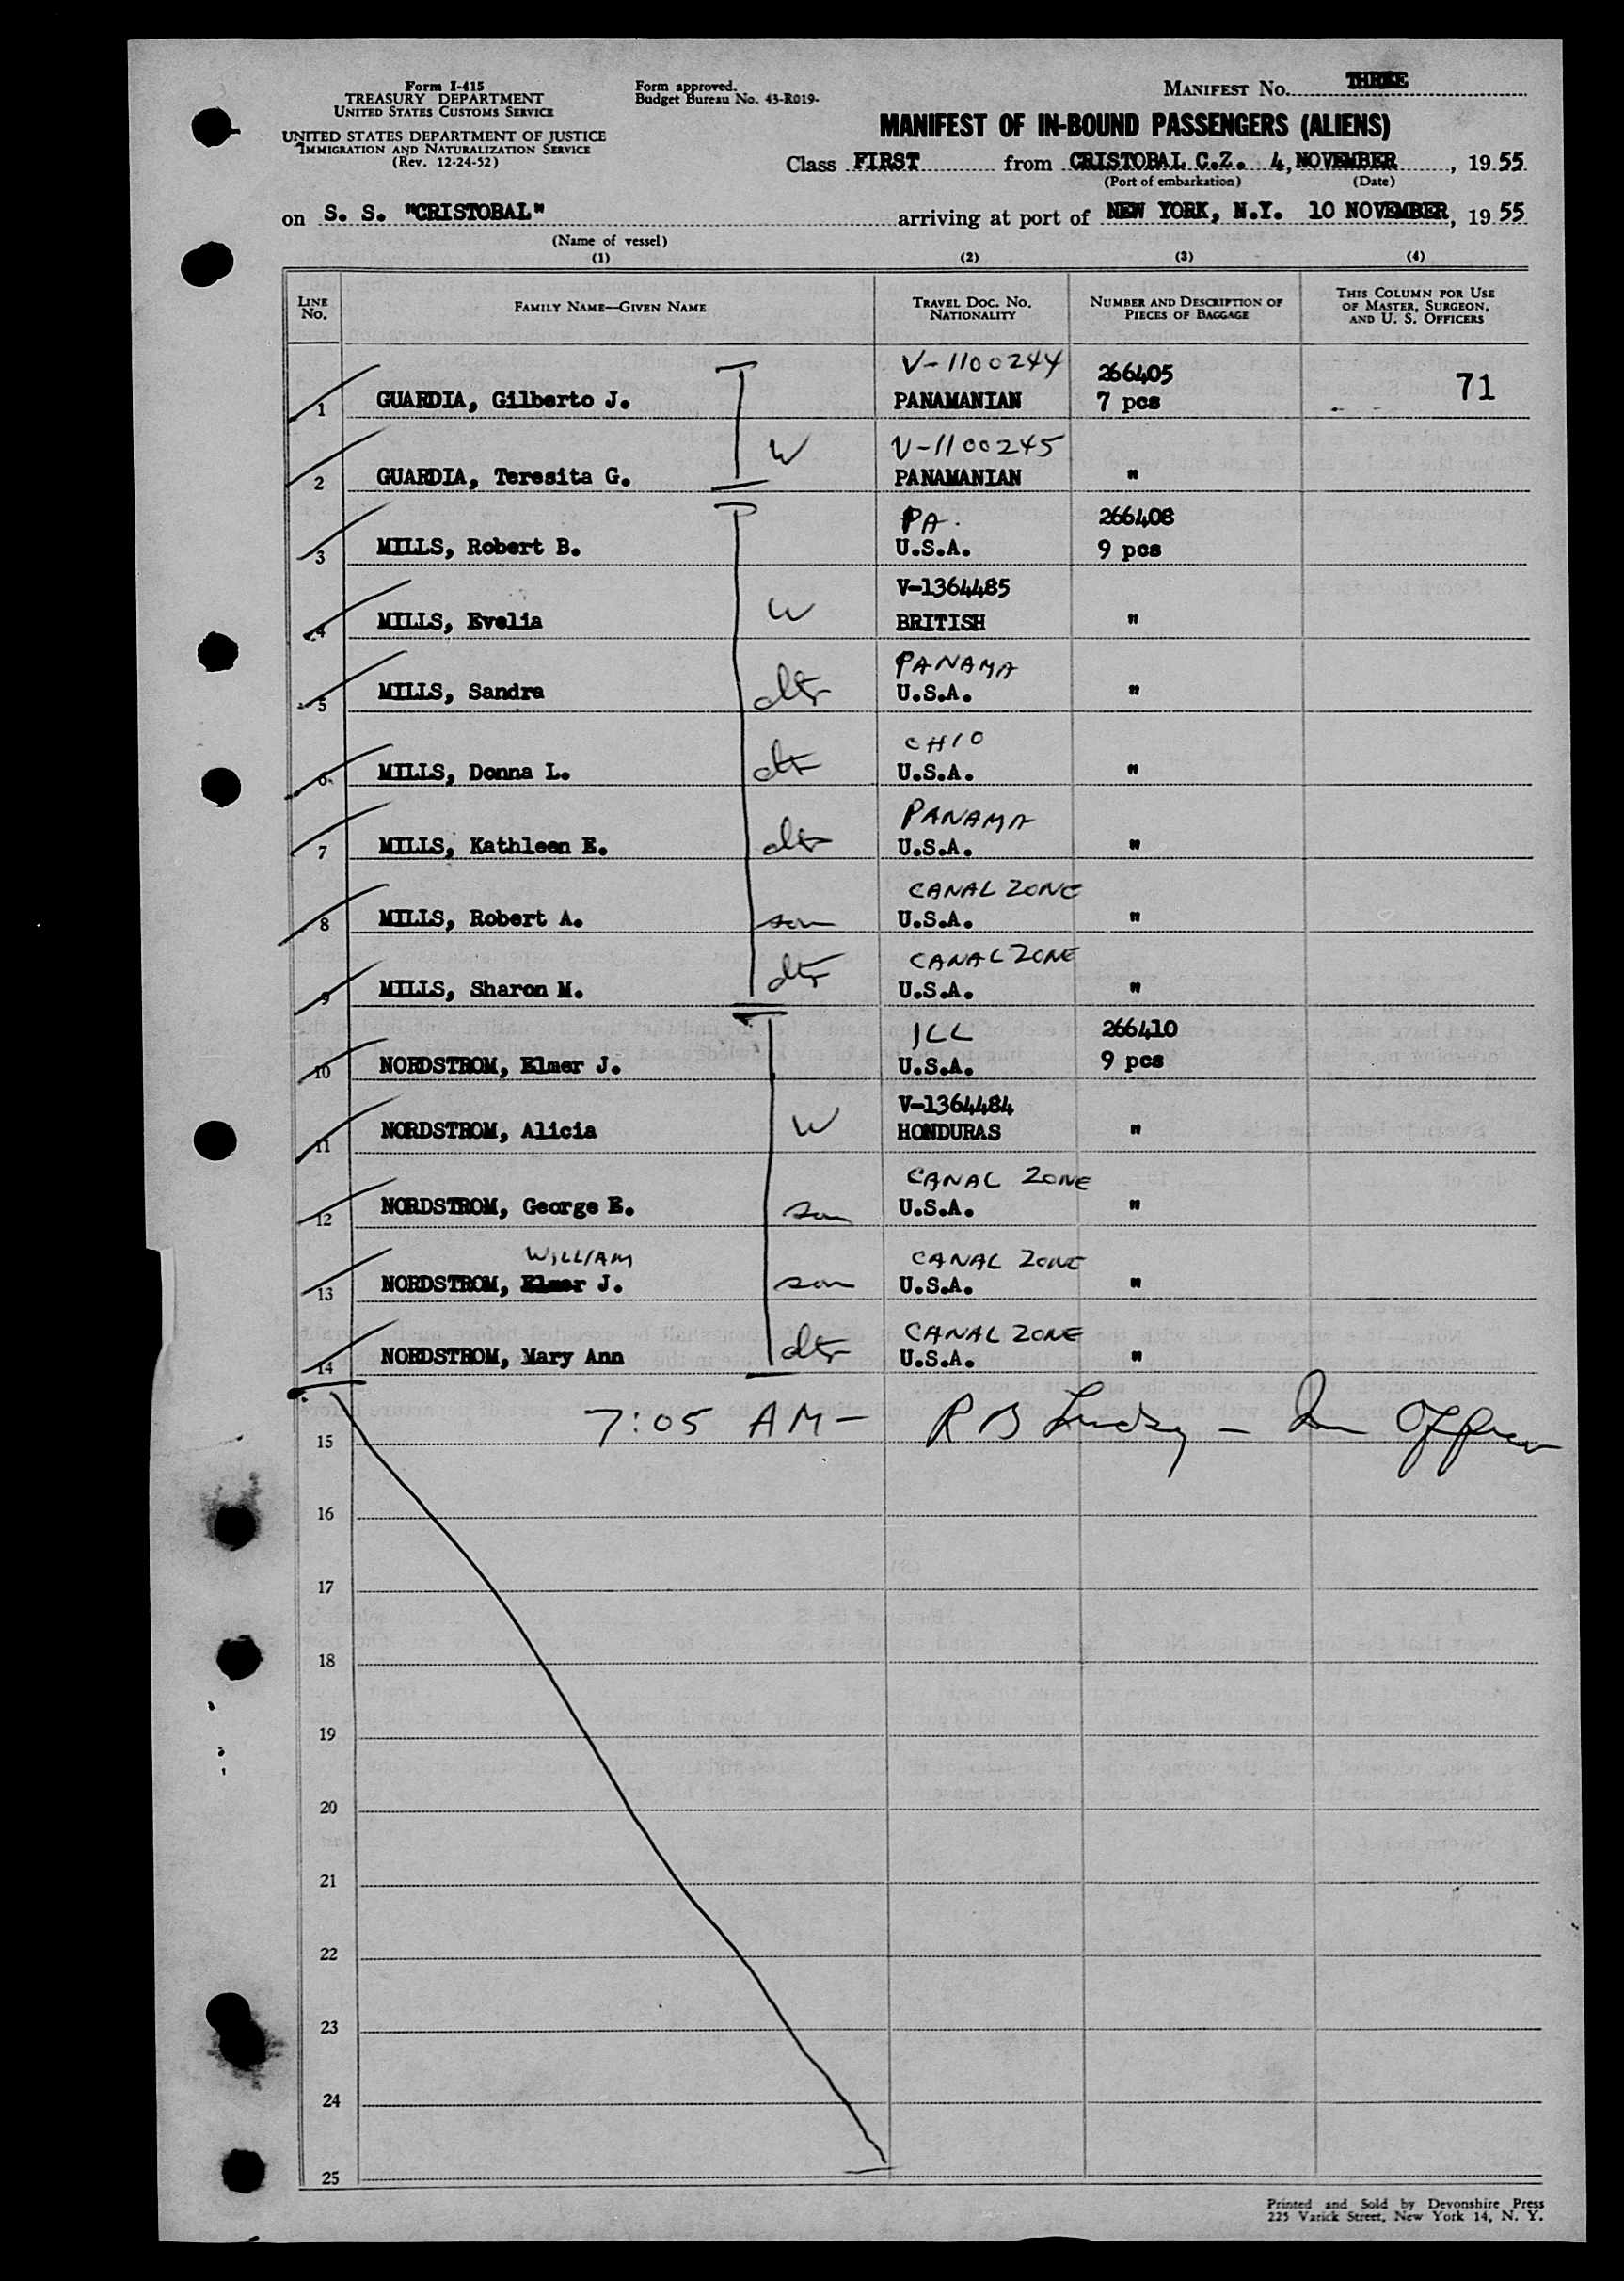 Form I-415
TREASURY DEPARTMENT
UNITED STATES CUSTOMS SERVICE
UNITED STATES DEPARTMENT OF JUSTICE
IMMIGRATION AND NATURALIZATION SERVICE
(Rev. 12-24-52)
Form approved.
Budget Bureau No. 43-R019-
MANIFEST No. THREE
MANIFEST OF IN-BOUND PASSENGERS (ALIENS)
Class FIRST from CRISTOBAL C.Z. 4, NOVEMBER, 19 55
(Port of embarkation) (Date)
on S. S. "CRISTOBAL" arriving at port of NEW YORK, N.Y. 10 NOVEMBER, 19 55
(Name of vessel)
(1) (2) (3) (4)
LINE No. FAMILY NAME—GIVEN NAME TRAVEL DOC. NO. NATIONALITY NUMBER AND DESCRIPTION OF PIECES OF BAGGAGE THIS COLUMN FOR USE OF MASTER, SURGEON, AND U. S. OFFICERS
V-1100244 266405
1 GUARDIA, Gilberto J. PANAMANIAN 7 pcs 71
W V-1100245
2 GUARDIA, Teresita G. PANAMANIAN "
PA. 266408
3 MILLS, Robert B. U.S.A. 9 pcs
V-1364485
4 MILLS, Evelia W BRITISH "
PANAMA
5 MILLS, Sandra dtr U.S.A. "
OHIO
6 MILLS, Donna L. dtr U.S.A. "
PANAMA
7 MILLS, Kathleen E. dtr U.S.A. "
CANAL ZONE
8 MILLS, Robert A. son U.S.A. "
CANAL ZONE
9 MILLS, Sharon M. dtr U.S.A. "
ILL 266410
10 NORDSTROM, Elmer J. U.S.A. 9 pcs
V-1364484
11 NORDSTROM, Alicia W HONDURAS "
CANAL ZONE
12 NORDSTROM, George E. son U.S.A. "
WILLIAM CANAL ZONE
13 NORDSTROM, Elmer J. son U.S.A. "
CANAL ZONE
14 NORDSTROM, Mary Ann dtr U.S.A. "
7:05 AM - R B - Officer
15
16
17
18
19
20
21
22
23
24
25
Printed and Sold by Devonshire Press
225 Varick Street, New York 14, N. Y.